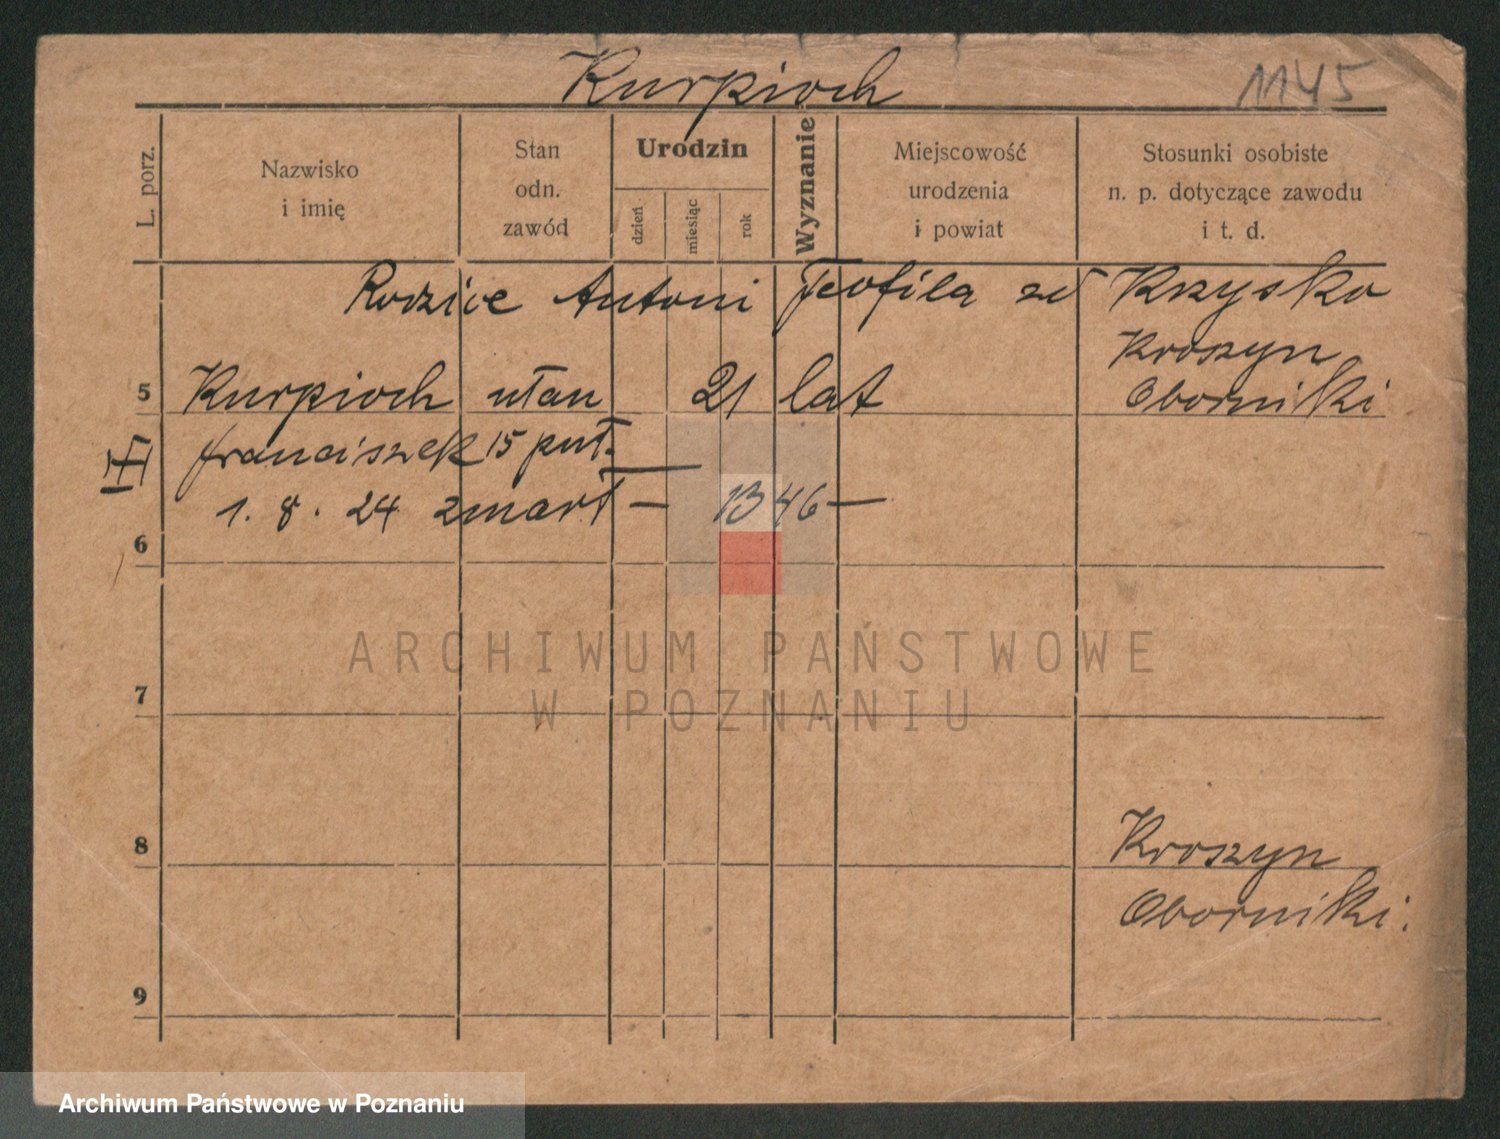 Kurpioch
1145
L. porz.
Nazwisko
i imię
Stan
odn.
zawód
Urodzin
dzień
miesiąc
rok
Wyznanie
Miejscowość
urodzenia
i powiat
Stosunki osobiste
n. p. dotyczące zawodu
i t. d.
Rodzice Antoni Teofila zd Krzysko
Kroszyn
5 Kurpioch ułan 21 lat Oborniki
Franciszek 15 puł.
II
1. 8. 24 zmarł — 1346 —
6
ARCHIWUM PAŃSTWOWE
W POZNANIU
7
8 Kroszyn
Oborniki.
9
Archiwum Państwowe w Poznaniu